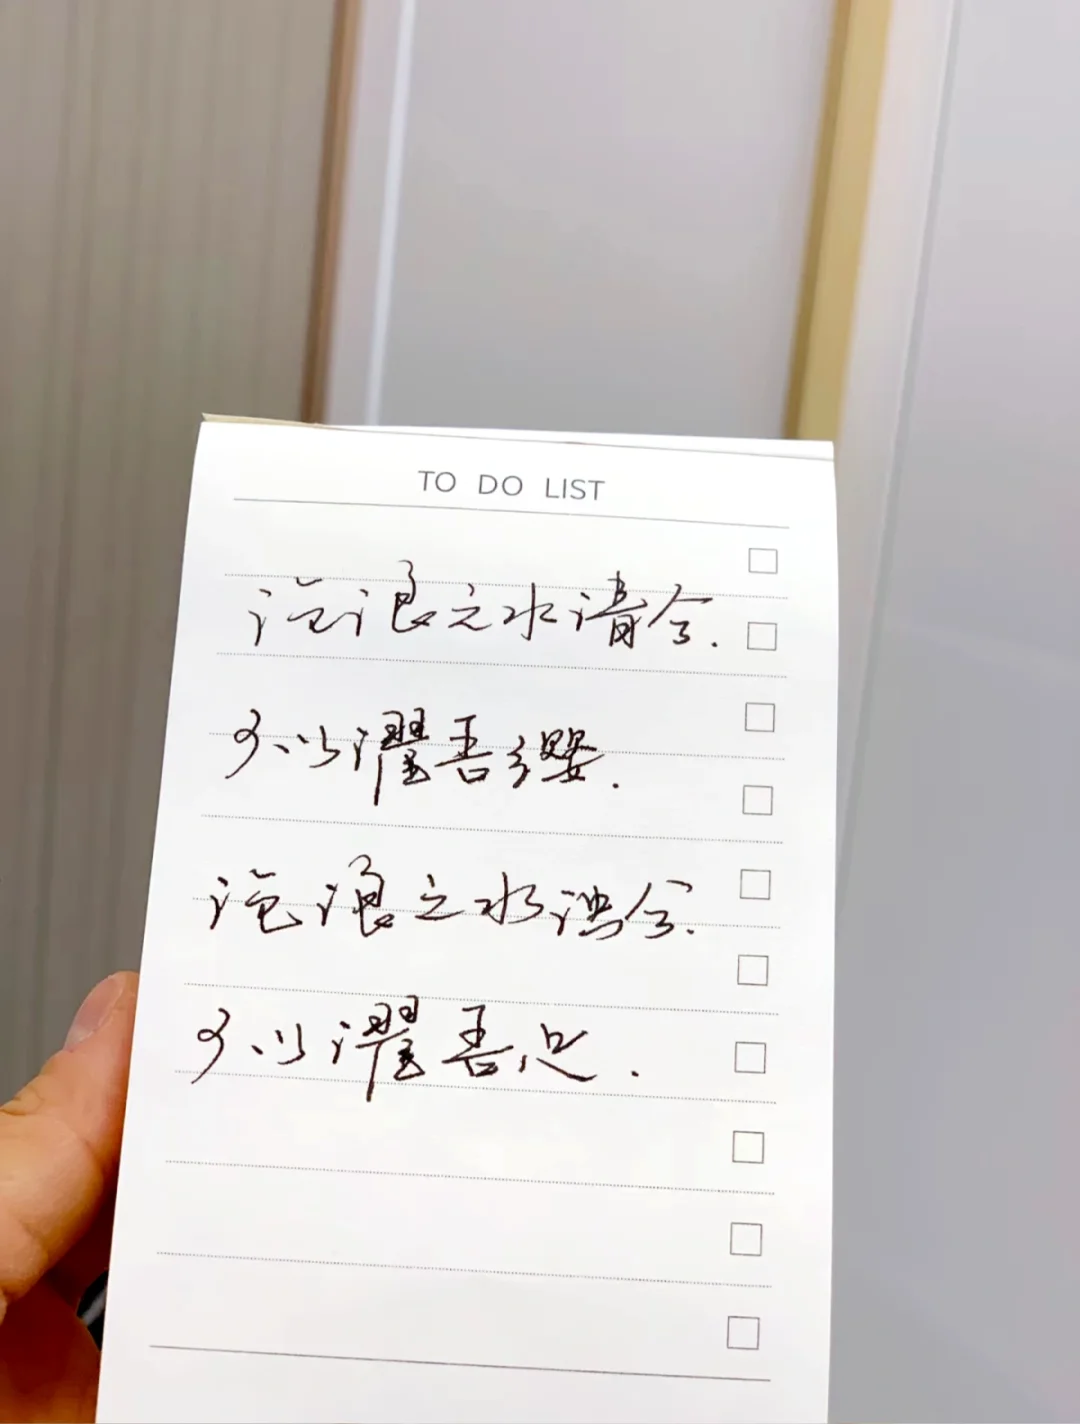 TO DO LIST
沧浪之水清兮.
可以濯吾缨.
沧浪之水浊兮.
可以濯吾足.